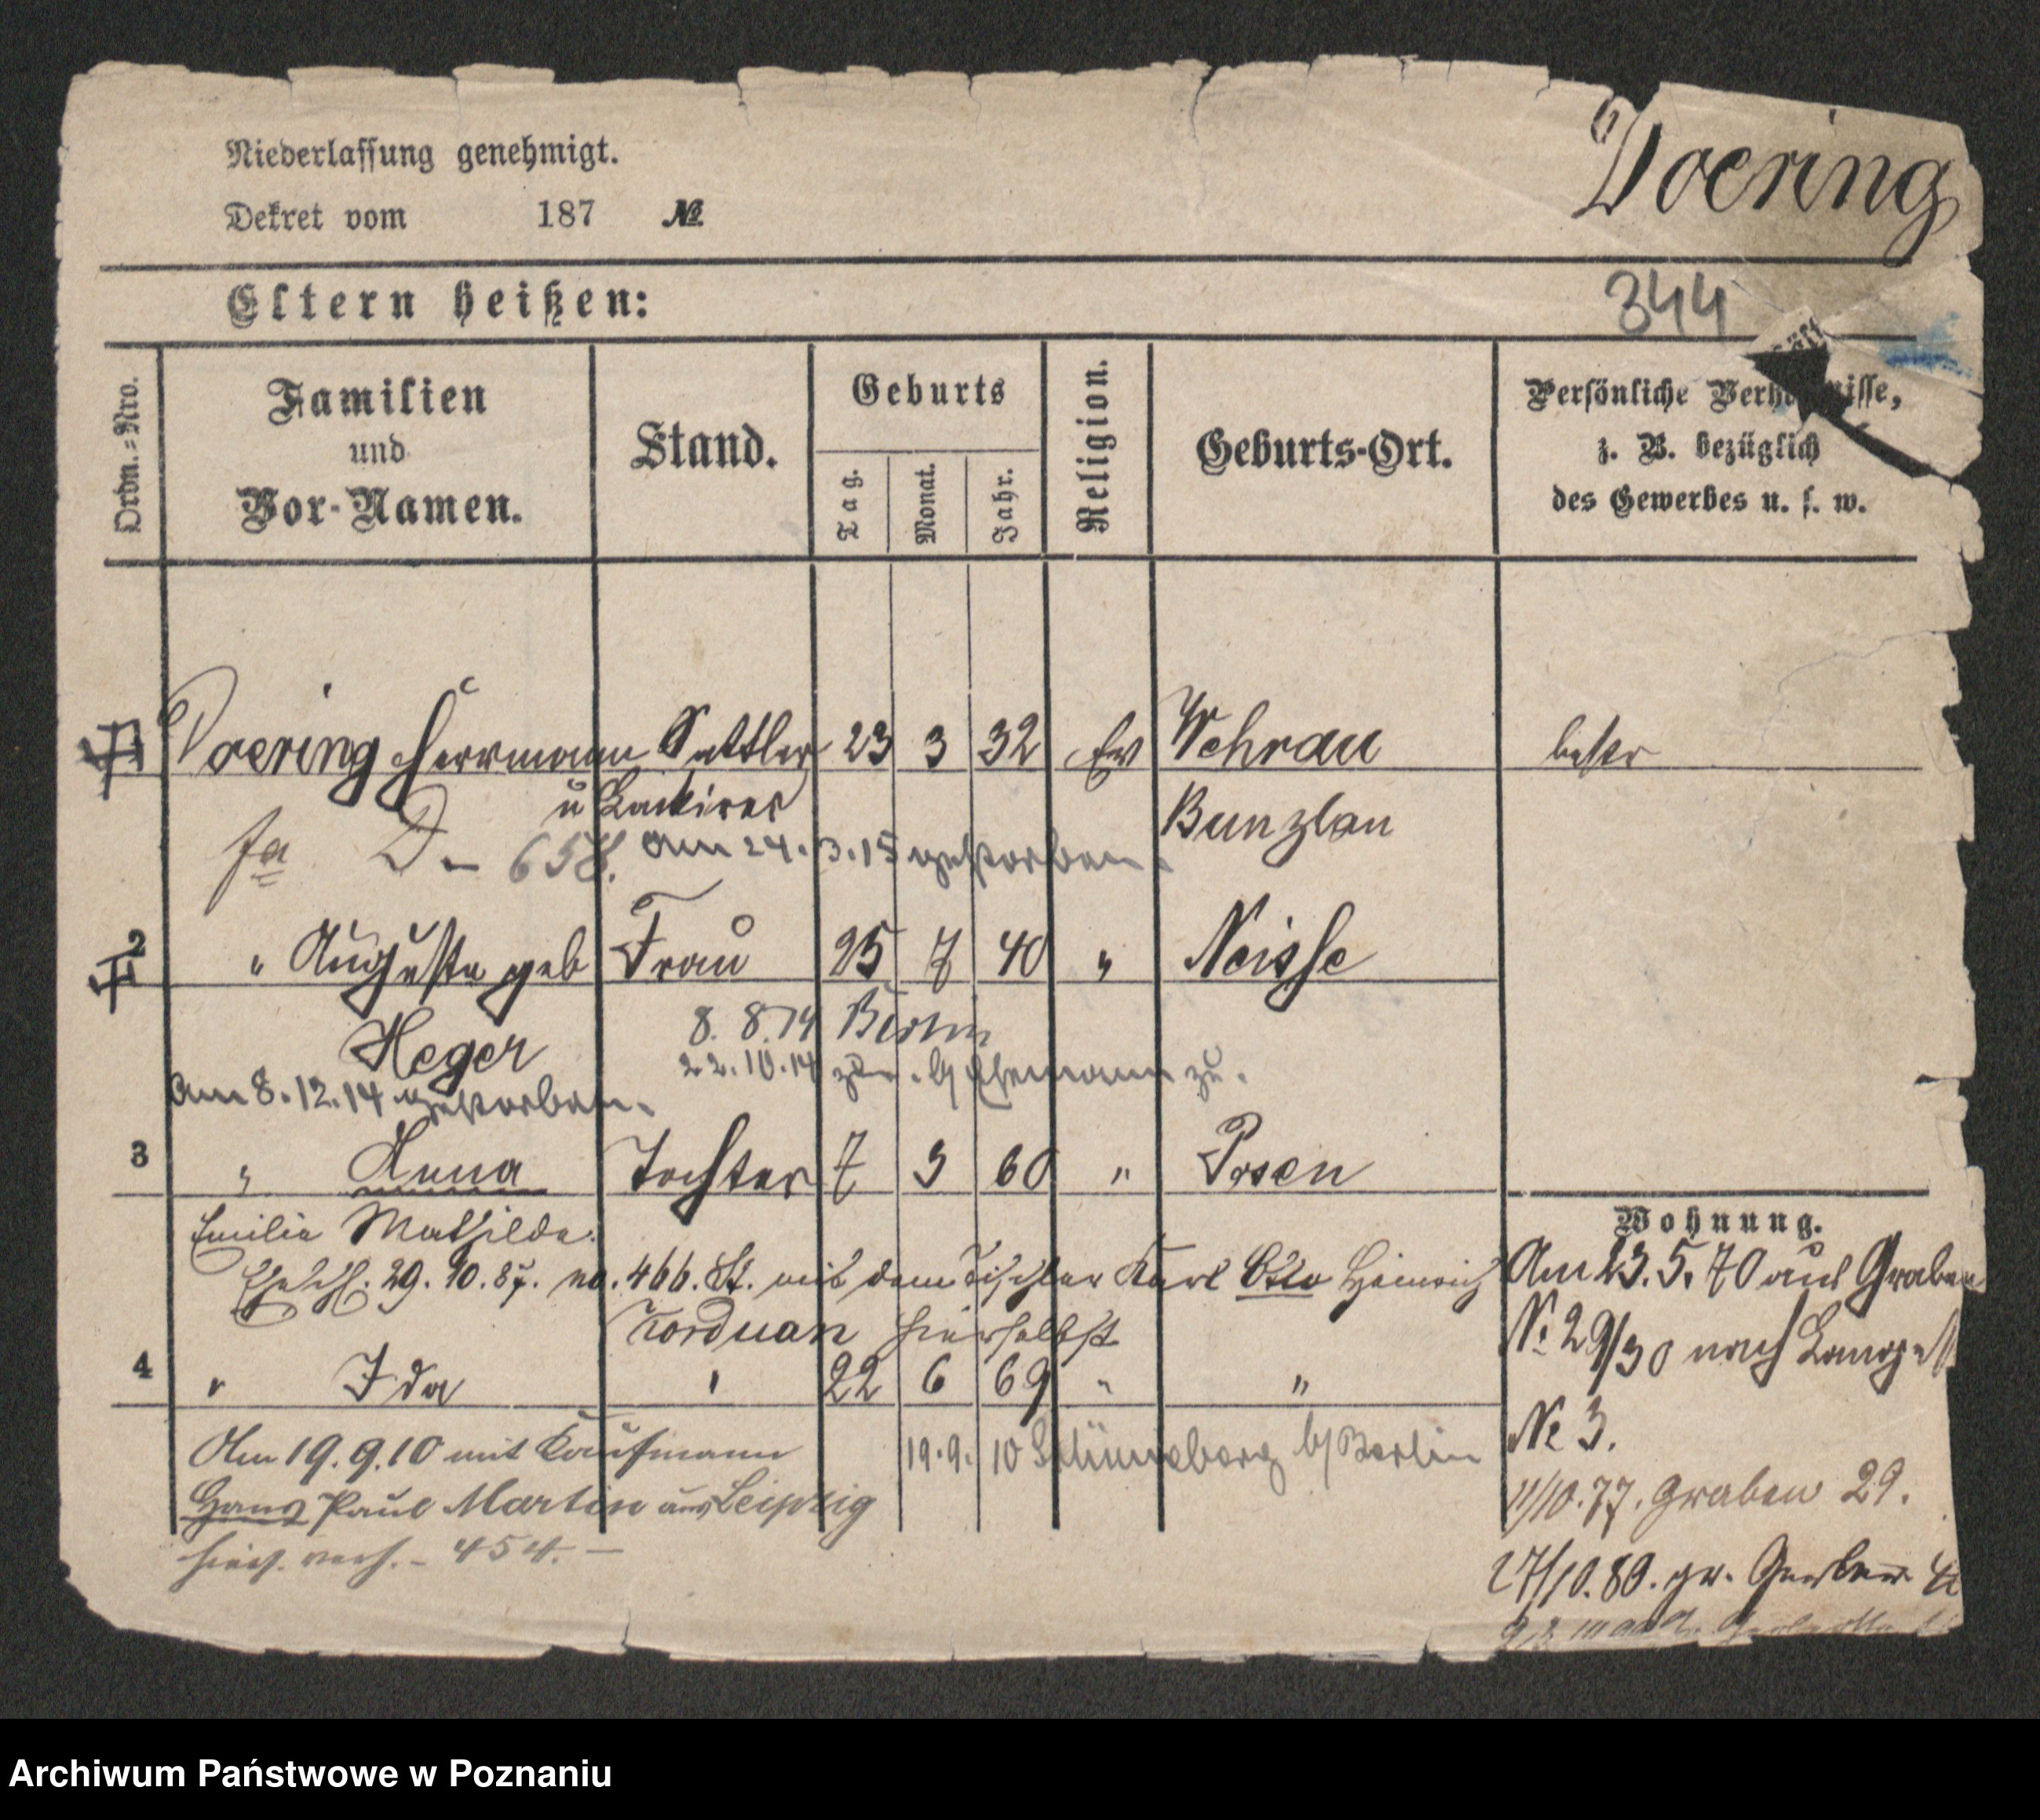 Niederlassung genehmigt.
Dekret vom 187 №
Doering
Eltern heißen:
344
Ordn.-Nro.
Familien und Vor-Namen.
Stand.
Geburts
Tag.
Monat.
Jahr.
Religion.
Geburts-Ort.
Persönliche Verhältnisse,
z. B. bezüglich
des Gewerbes u. s. w.
Doering Herrmann Sattler 23 3 32 Ev Wehrau
u Lackirer Bunzlau
D- 658. Am 24.3.15 gestorben.
2 " Auguste geb Frau 25 7 40 " Neisse
Heger 8. 8. 14 Berlin
22.10.14 zu.
Am 8.12.14 gestorben.
3 " Anna Tochter 7 3 60 " Posen
Emilie Mathilde.
29. 10. 87. no. 466. St. mit dem Tischler Karl Otto Heinrich
Korduan hierselbst
4 " Ida " 22 6 69 " "
Am 19.9.10 mit Kaufmann 19.9.10 Schöneberg b/Berlin
Hans Paul Martin aus Leipzig
hier. verh. - 454. -
Wohnung.
Am 23.5.70 aus Graben
№ 29/30 nach
№ 3.
11/10.77. Graben 29.
17/10.80. gr.
Archiwum Państwowe w Poznaniu